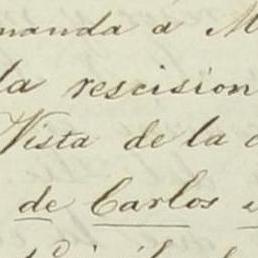 manda a M
la rescision
Vista de la
de Carlos